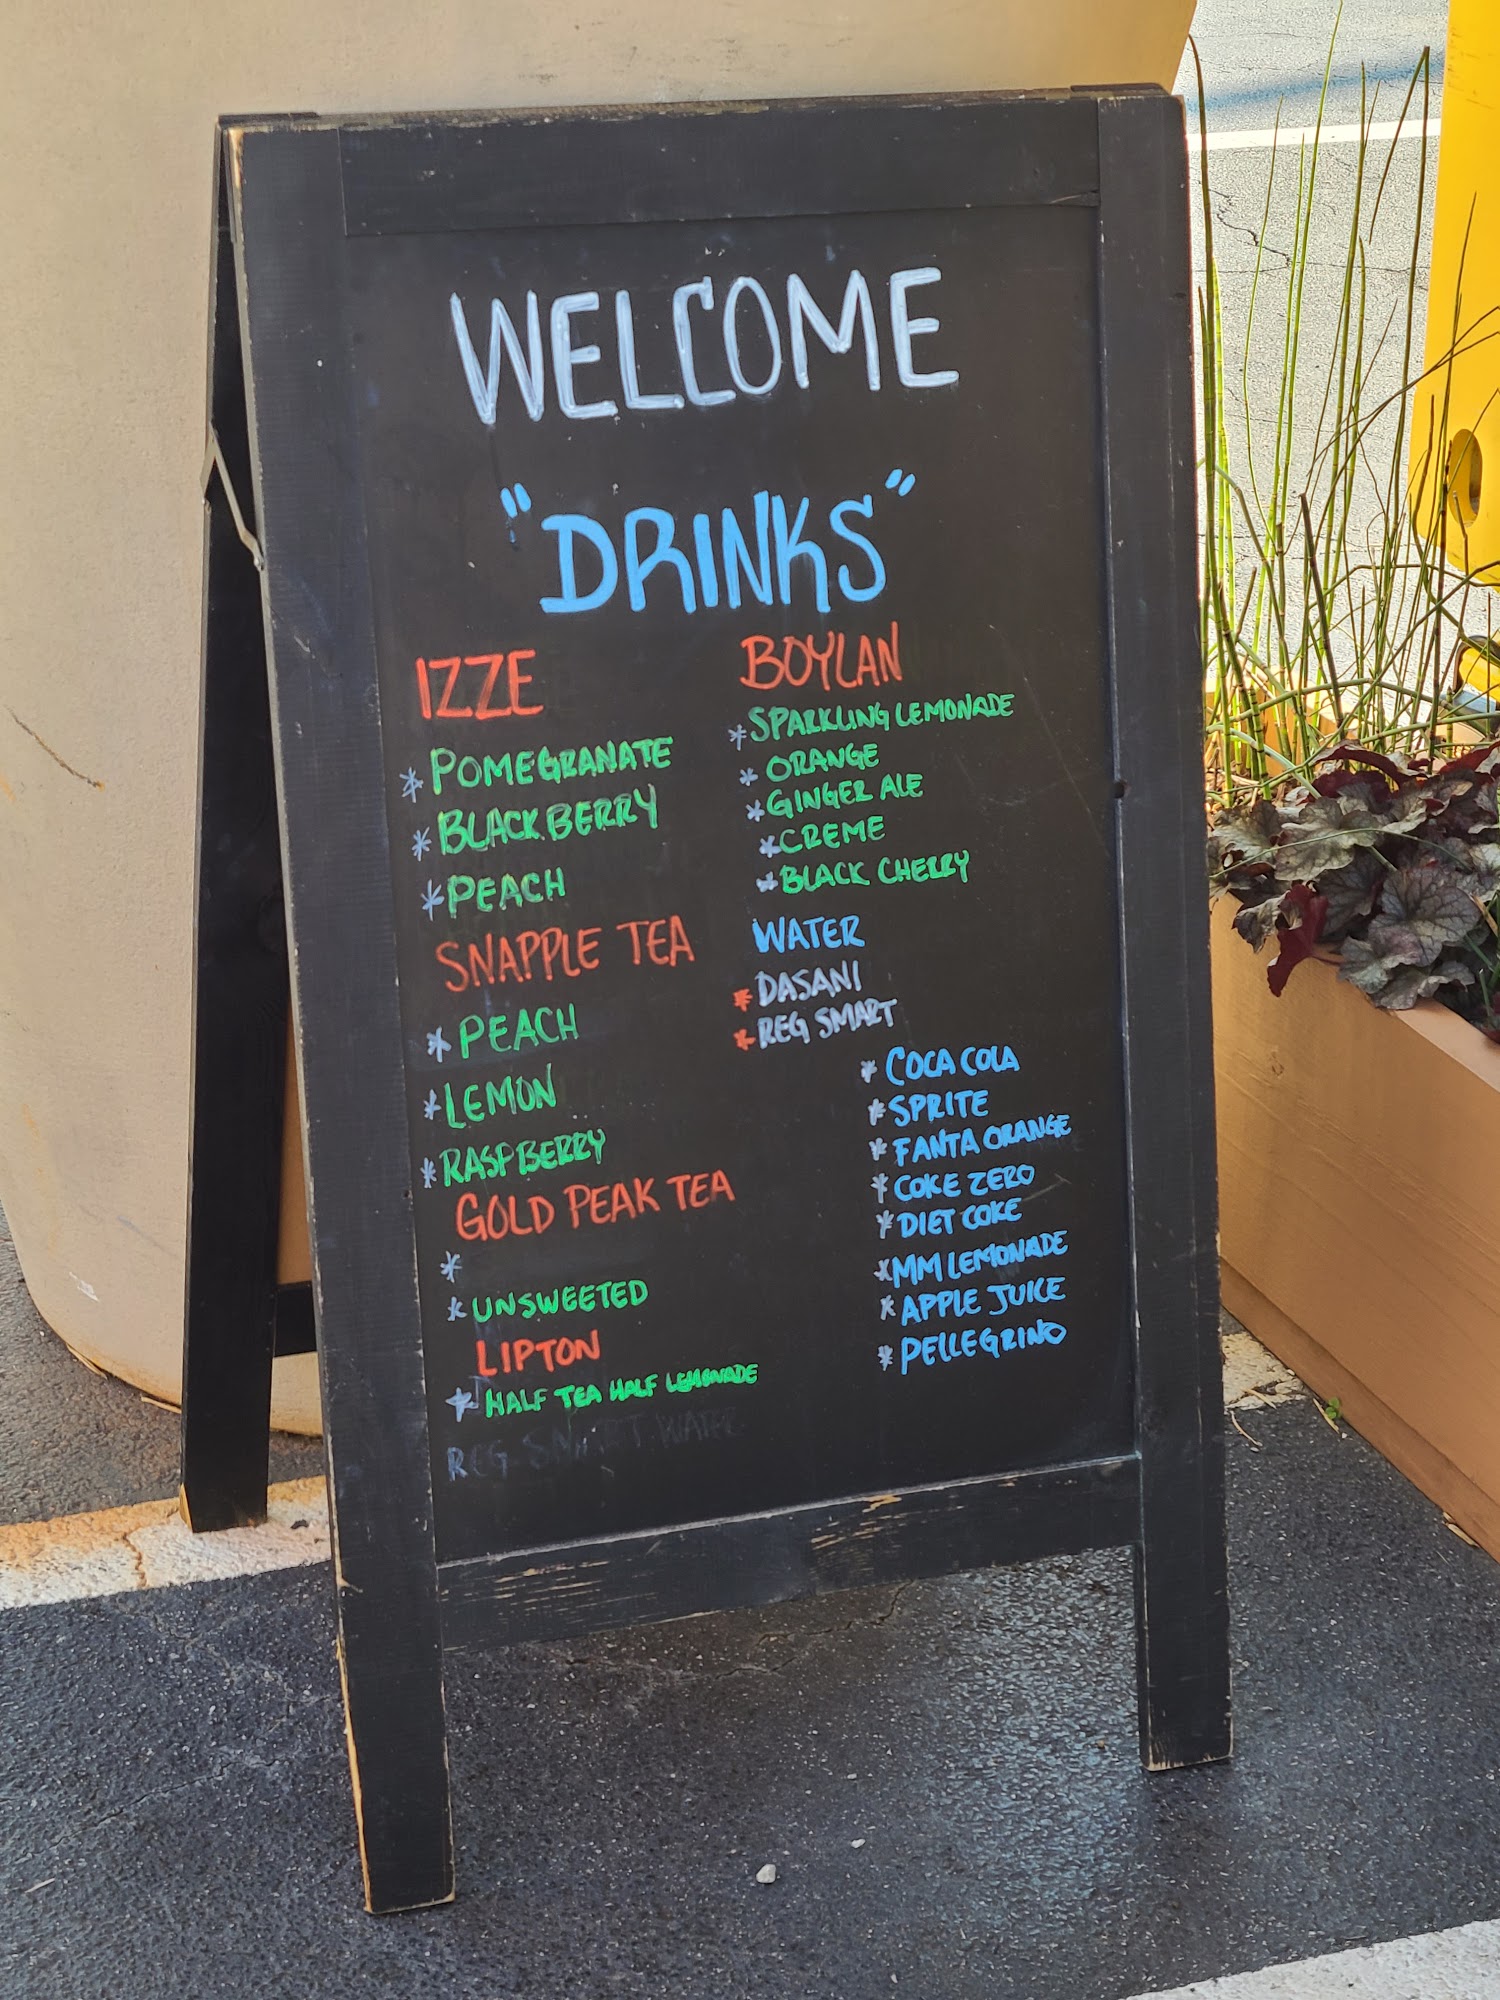 WELCOME
"DRINKS"
IZZE
* POMEGRANATE
* BLACKBERRY
* PEACH
SNAPPLE TEA
* PEACH
* LEMON
* RASPBERRY
GOLD PEAK TEA
*
* UNSWEETED
LIPTON
* HALF TEA HALF LEMONADE
REG SMART WATER
BOYLAN
* SPARKLING LEMONADE
* ORANGE
* GINGER ALE
* CREME
* BLACK CHERRY
WATER
* DASANI
* REG SMART
* COCA COLA
* SPRITE
* FANTA ORANGE
* COKE ZERO
* DIET COKE
* MM LEMONADE
* APPLE JUICE
* PELLEGRINO